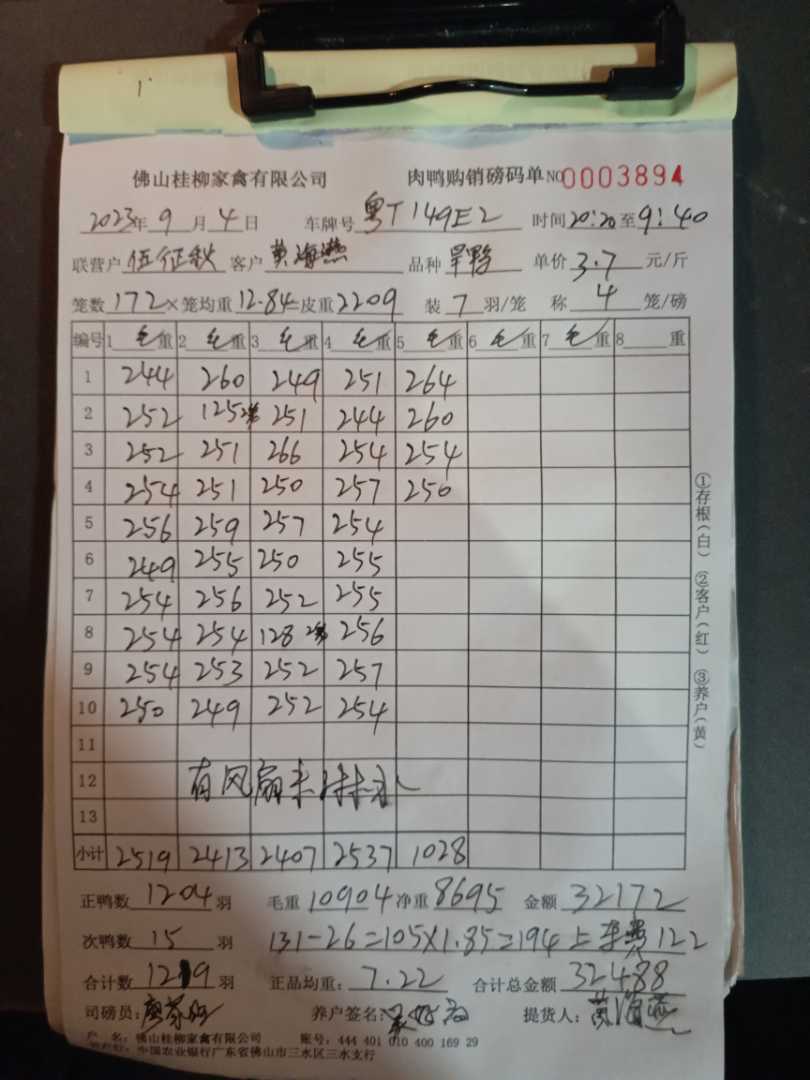 佛山桂柳家禽有限公司 肉鸭购销磅码单 NO 0003894
2023年 9 月 4 日 车牌号 粤T149E2 时间 20:20 至 9:40
联营户 伍征秋 客户 黄海燕 品种 旱鸭 单价 3.7 元/斤
笼数 172 × 笼均重 12.84 = 皮重 2209 装 7 羽/笼 称 4 笼/磅
编号 1 毛重 2 毛重 3 毛重 4 毛重 5 毛重 6 毛重 7 毛重 8 重
1 244 260 249 251 264
2 252 125 251 244 260
3 252 251 266 254 254
4 254 251 250 257 250
5 256 259 257 254
6 249 255 250 255
7 254 256 252 255
8 254 254 128 256
9 254 253 252 257
10 250 249 252 254
11
12 有风扇未淋水
13
小计 2519 2413 2407 2537 1028
正鸭数 1204 羽 毛重 10904 净重 8695 金额 32172
次鸭数 15 羽 131-26=105×1.85=194 上车费122
合计数 1219 羽 正品均重: 7.22 合计总金额 32488
司磅员: 养户签名: 提货人: 黄海燕
户 名: 佛山桂柳家禽有限公司 账号: 444 401 010 400 169 29
中国农业银行广东省佛山市三水区三水支行
①存根(白) ②客户(红) ③养户(黄)